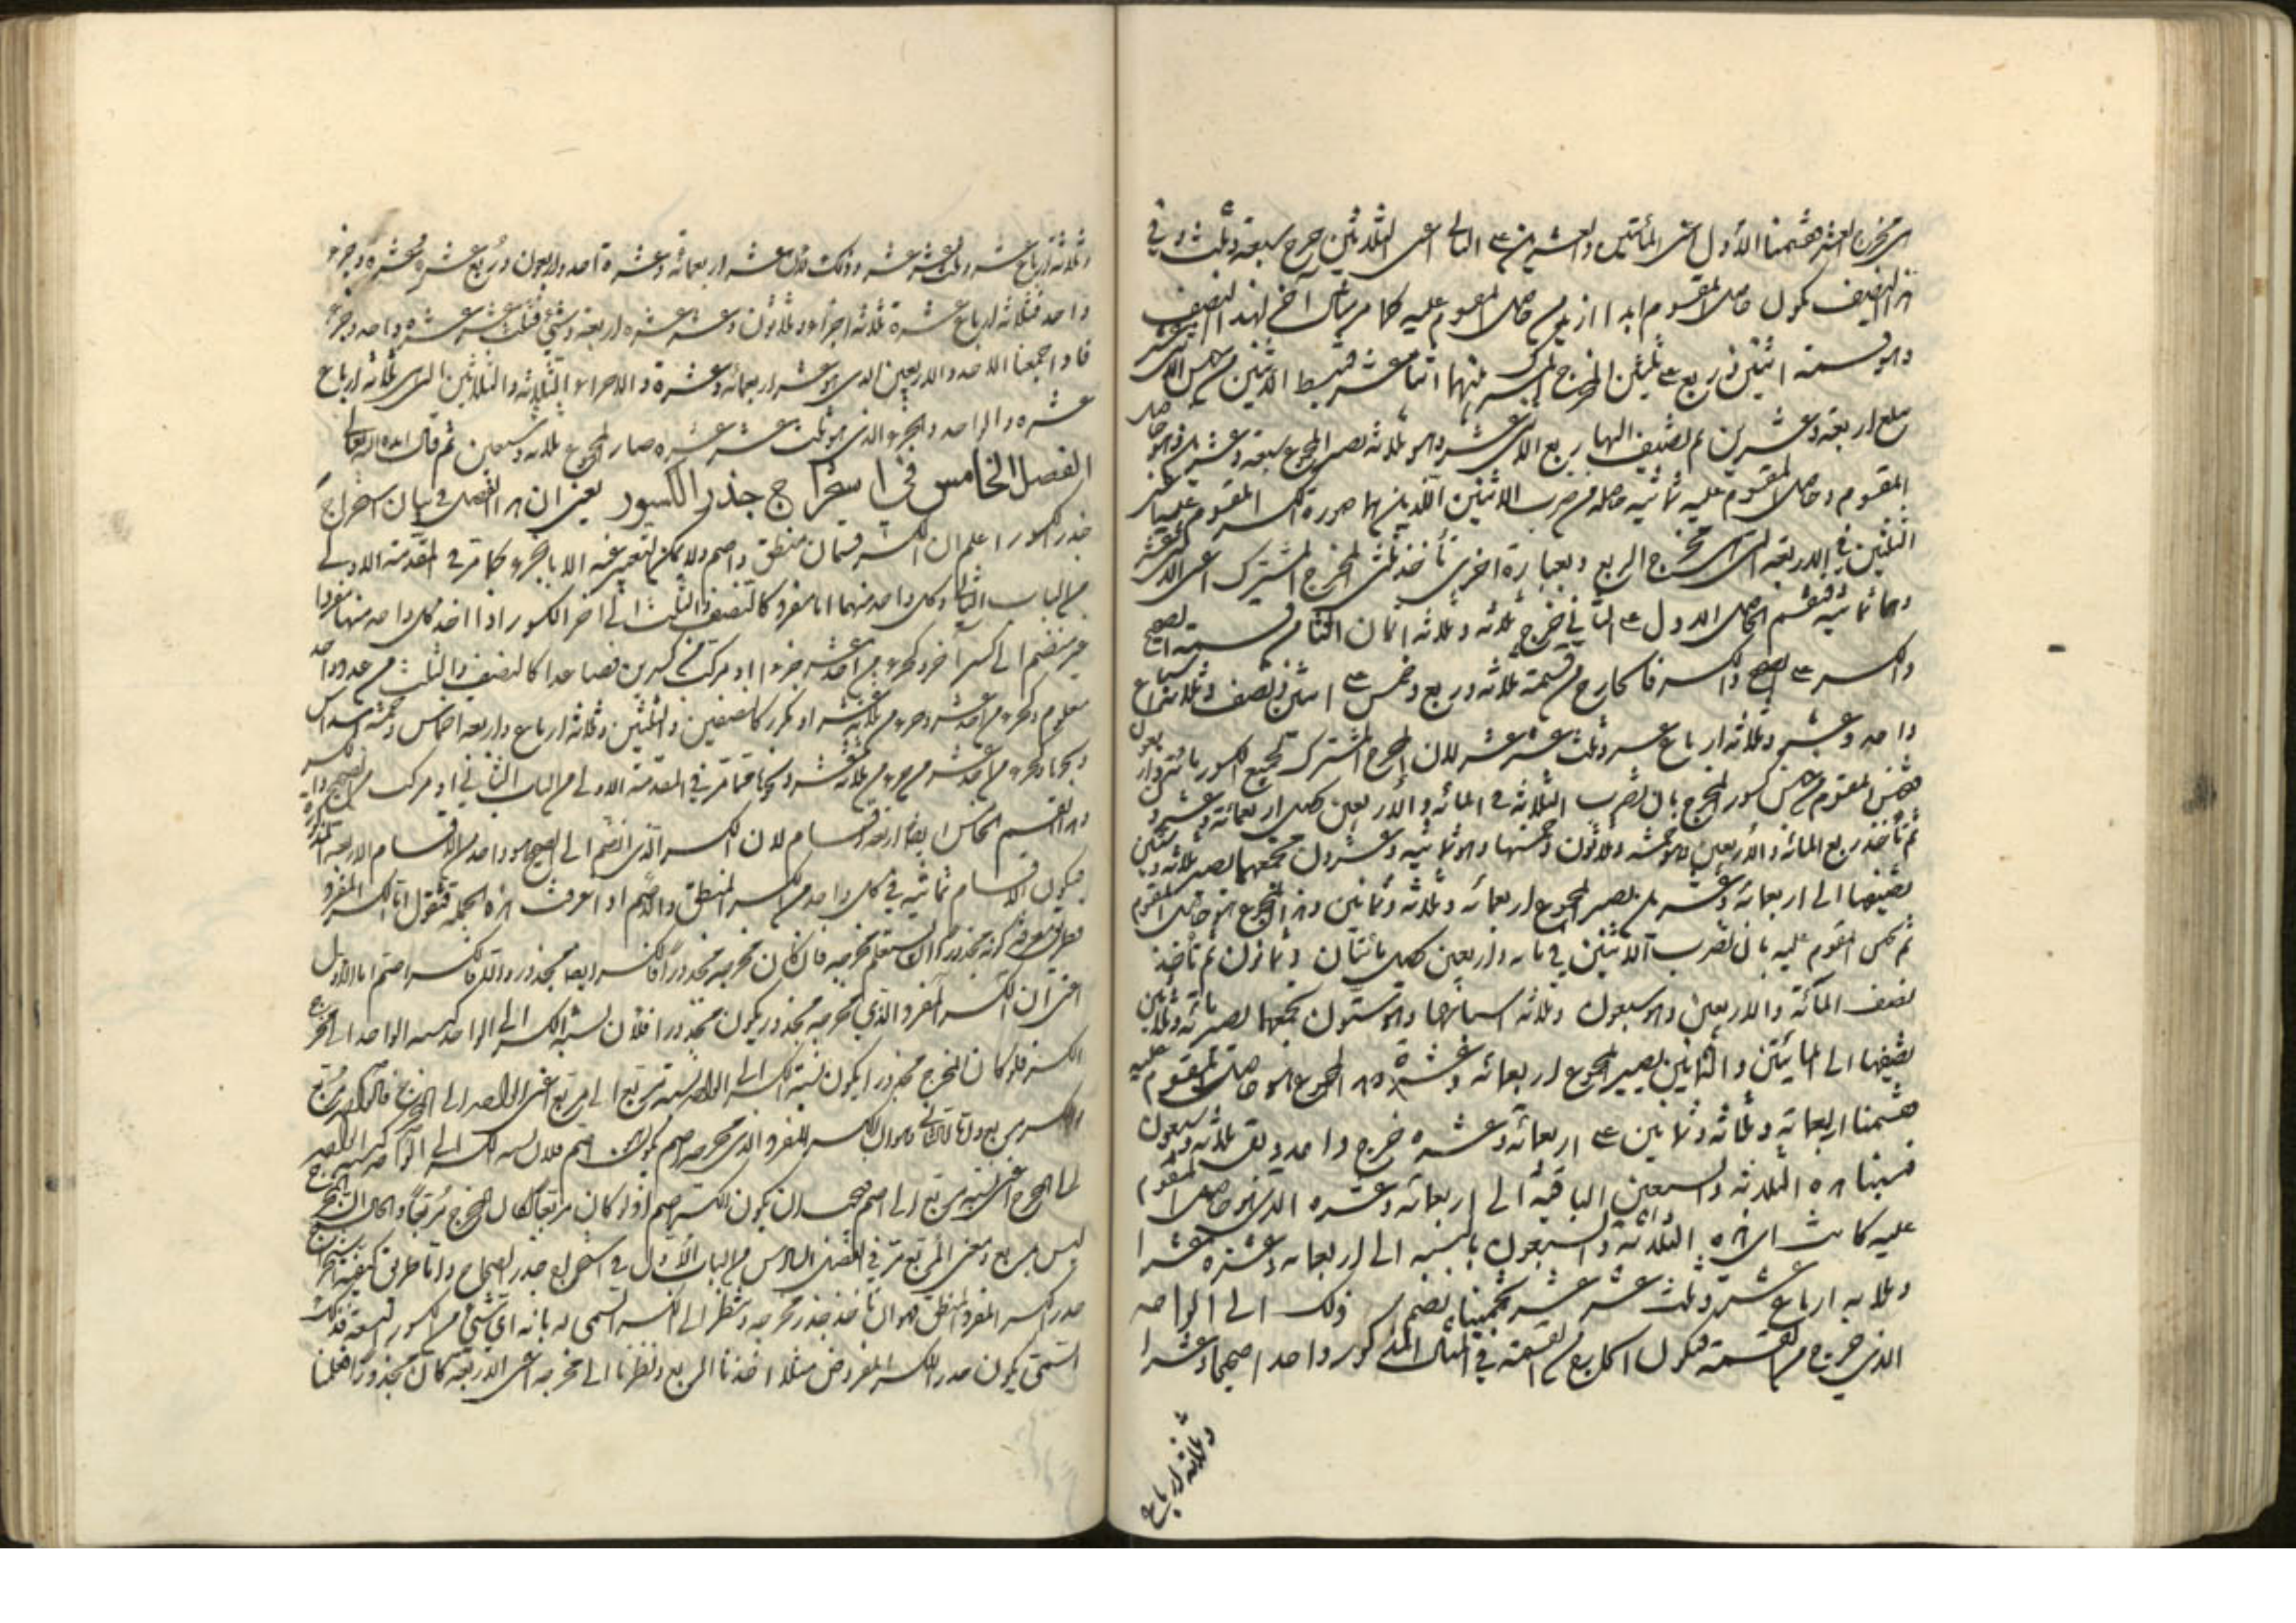 فقسمنا الأول اعنى المأتين والعشرين على الثانى اعنى الثلاثين خرج سبعة وثلث
التضعيف يكون حاصل المقسوم ابدا ازيد من حاصل المقسوم عليه كما مر مثال آخر لهذا التصنيف
وهو قسمة اثنين وربع على ثلثين المخرج المشترك بينهما اثنا عشر فتبسط الاثنين من جنس الكسر
تبلغ اربعة وعشرين ثم تضيف اليها ربع الاثنى عشر وهو ثلاثة يصير المجموع سبعة وعشرين وهو حاصل
المقسوم وحاصل المقسوم عليه ثمانية حاصلة من ضرب الاثنين اللذين هما صورة كسر المقسوم عليه
الثلثين في الاربعة التى هى مخرج الربع وبعبارة اخرى تأخذ ثلثى المخرج المشترك اعنى الاثنى عشر
وهما ثمانية فنقسم الحاصل الاول على الثانى خرج ثلاثة وثلاثة اثمان الثالث من قسمة الصحيح
والكسر على الصحيح والكسر فالخارج من قسمة ثلاثة وربع وخمس على اثنين ونصف وثلاثة اسباع
واحد وعشر وثلاثة ارباع عشر وثلث عشر عشر لان المخرج المشترك لجميع الكسور مائة واربعون
فجنس المقسوم من جنس كسور المخرج بان تضرب الثلاثة في المائة والاربعين حصل اربعمائة وعشرون
ثم تأخذ ربع المائة والاربعين وهو خمسة وثلاثون وخمسها وهو ثمانية وعشرون فجمعهما يصير ثلاثة وستين
تضيفها الى اربعمائة وعشرين يصير المجموع اربعمائة وثلاثة وثمانين وهذا المجموع هو حاصل المقسوم
ثم تجنس المقسوم عليه بان تضرب الاثنين في مائة واربعين حصل مائتان وثمانون ثم تأخذ
نصف المائة والاربعين وهو سبعون وثلاثة اسباعها وهو ستون تجمعها يصير مائة وثلاثين
تضيفها الى المائتين والثمانين يصير المجموع اربعمائة وعشرة وهذا المجموع هو حاصل المقسوم عليه
فقسمنا اربعمائة وثلاثة وثمانين على اربعمائة وعشرة خرج واحد وبقى ثلاثة وسبعون
نسبنا هذه الثلاثة والسبعين الباقية الى اربعمائة وعشرة الذى هو حاصل المقسوم
عليه كانت اى هذه الثلاثة والسبعون بالنسبة الى اربعمائة وعشرة عشرا
وثلاثة ارباع عشر وثلث عشر عشر تخمينا نضم ذلك الى الواحد
الذى خرج من القسمة فيكون الخارج من القسمة في المثال المذكور واحدا صحيحا وعشرا
وثلاثة ارباع
وثلاثة ارباع عشر وثلث عشر عشر وذلك لان عشر اربعمائة وعشرة احد واربعون وربع عشره عشرة وجزء
واحد فثلاثة ارباع عشره ثلاثة اجزاء وثلاثون وعشر عشره اربعة وشئ فثلث عشر عشره واحد وجزء
فاذا جمعنا الاحد والاربعين الذى هو عشر اربعمائة وعشرة والاجزاء والثلاثة والثلاثين التى هى ثلاثة ارباع
عشره والواحد والجزء الذى هو ثلث عشر عشره صار المجموع ثلاثة وسبعين ثم قال ايده الله تعالى
الفصل الخامس في استخراج جذر الكسور يعنى ان هذا الفصل في بيان استخراج
جذر الكسور اعلم ان الكسر قسمان منطق واصم ولا يمكن التعبير عنه الا بالجزء كما مر في المقدمة الاولى
من الباب الثانى وكل واحد منهما اما مفرد كالنصف والثلث الى آخر الكسور اذا اخذ كل واحد منها مفردا
غير منضم الى كسر آخر وكجزء من احد عشر جزءا او مركب من كسرين فصاعدا كالنصف والثلث من عدد واحد
معلوم وكجزء من احد عشر وجزء من ثلاثة عشر او مكرر كالنصفين والثلثين وثلاثة ارباع واربعة اخماس وخمسة اسداس
ونحوها وكجزء من احد عشر من جزء من ثلاثة عشر ونحوها مما مر في المقدمة الاولى من الباب الثانى او مركب من الصحيح والكسر
وهذا القسم الخامس ايضا اربعة اقسام لان الكسر الذى انضم الى الصحيح هو واحد من الاقسام الاربعة المذكورة
فيكون الاقسام ثمانية في كل واحد من الكسر المنطق والاصم اذا عرفت هذه الجملة فنقول اما الكسر المفرد
فطريق معرفة كونه مجذورا ان تستعلم مخرجه فان كان مخرجه مجذورا فالكسر ايضا مجذور والا فالكسر اصم اما الاول
اعنى ان الكسر المفرد الذى مخرجه مجذور يكون مجذورا فلان نسبة الكسر الى الواحد كنسبة الواحد الى مخرج
الكسر فلو كان المخرج مجذورا يكون نسبة الكسر الى الواحد نسبة مربع الى مربع اعنى الواحد الى المخرج فالكسر مربع
الكسر مربع واما الثانى وهو ان الكسر المفرد الذى مخرجه اصم يكون اصم فلان نسبة الكسر الى الواحد كنسبة الواحد
الى المخرج اعنى نسبة مربع الى اصم فيجب ان يكون الكسر اصم اذ لو كان مربعا لكان المخرج مربعا والحال ان المخرج
ليس بمربع ومعنى المربع مر في الفصل السادس من الباب الأول في استخراج جذر الصحاح واما طريق كيفية استخراج
جذر الكسر المفرد المنطق فهو ان تأخذ جذر مخرجه وتنظر الى الكسر المسمى له بانه اى شئ من الكسور التسعة فذلك
المسمى يكون جذر الكسر المفروض مثلا اخذنا الربع ونظرنا الى مخرجه اعنى الاربعة كان مجذورا فعلمنا